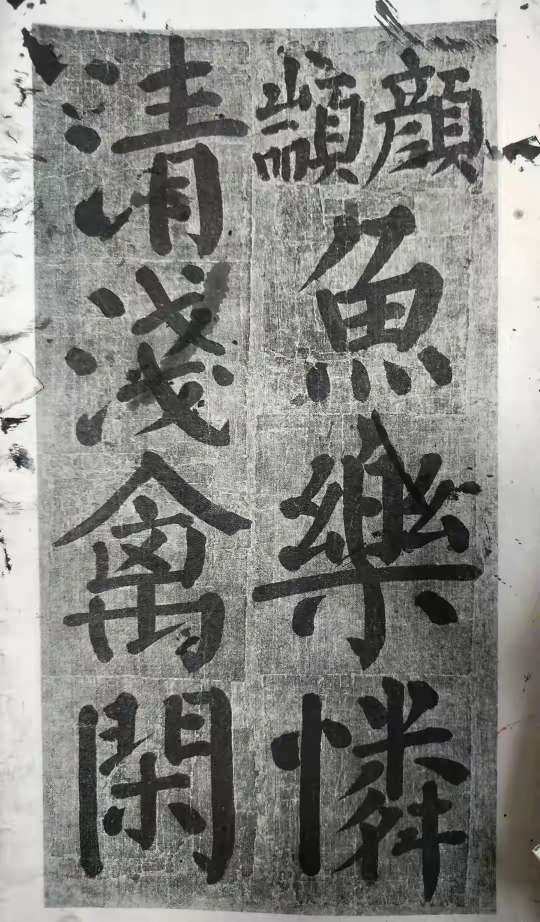 顔顓
魚樂憐
清淺禽閑